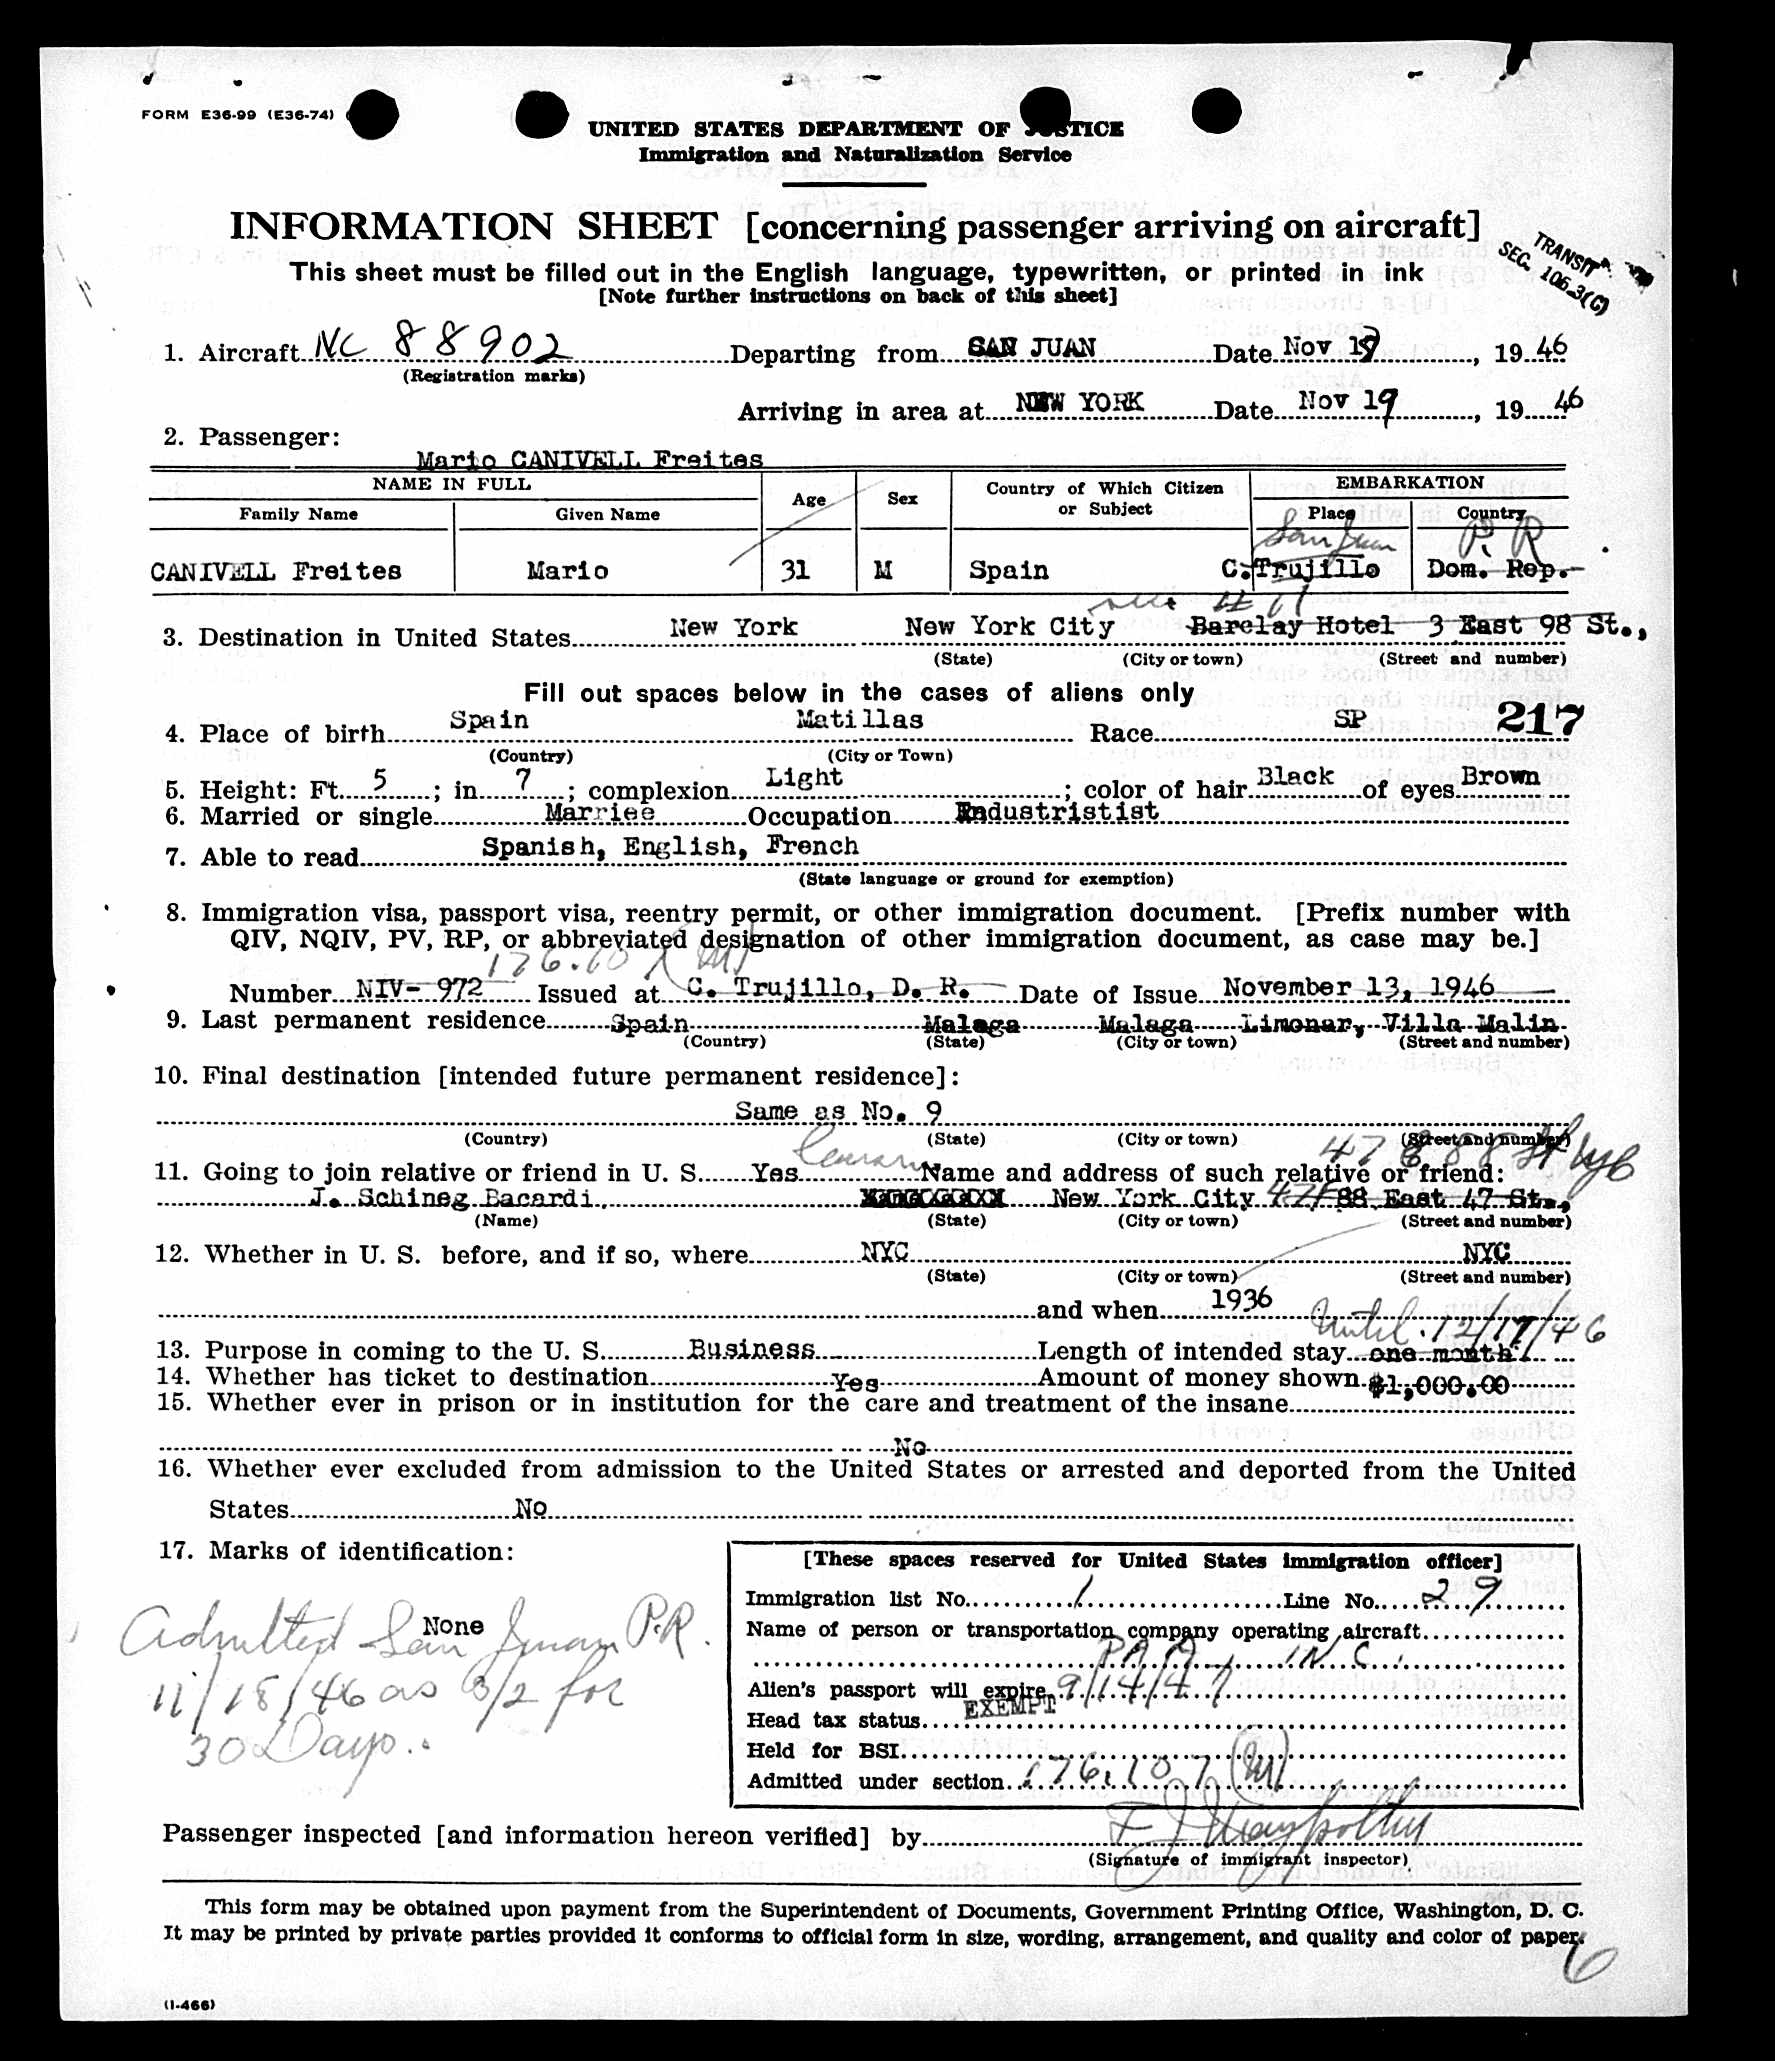 FORM E36-99 (E36-74)
UNITED STATES DEPARTMENT OF JUSTICE
Immigration and Naturalization Service
INFORMATION SHEET [concerning passenger arriving on aircraft]
This sheet must be filled out in the English language, typewritten, or printed in ink
[Note further instructions on back of this sheet]
TRANSIT
SEC. 106.3(G)
1. Aircraft NC 88902 Departing from SAN JUAN Date Nov 19, 1946
(Registration marks)
Arriving in area at NEW YORK Date Nov 19, 1946
2. Passenger:
Mario CANIVELL Freites
NAME IN FULL Age Sex Country of Which Citizen or Subject EMBARKATION
Family Name Given Name Place Country
San Juan P.R
CANIVELL Freites Mario 31 M Spain C.Trujillo Dom. Rep.
3. Destination in United States New York New York City Barclay Hotel 3 East 98 St.,
(State) (City or town) (Street and number)
Fill out spaces below in the cases of aliens only
4. Place of birth Spain Matillas Race SP 217
(Country) (City or Town)
5. Height: Ft. 5; in. 7; complexion Light; color of hair Black of eyes Brown
6. Married or single Marriee Occupation Industristist
7. Able to read Spanish, English, French
(State language or ground for exemption)
8. Immigration visa, passport visa, reentry permit, or other immigration document. [Prefix number with
QIV, NQIV, PV, RP, or abbreviated designation of other immigration document, as case may be.]
Number NIV- 972 Issued at C. Trujillo, D. R. Date of Issue November 13, 1946
9. Last permanent residence Spain Malaga Malaga Limonar, Villa Malin
(Country) (State) (City or town) (Street and number)
10. Final destination [intended future permanent residence]:
Same as No. 9
(Country) (State) (City or town) (Street and number)
47 E 88 St NYC
11. Going to join relative or friend in U. S. Yes Name and address of such relative or friend:
J. Schineg Bacardi New York City 47 E 88 East 47 St.,
(Name) (State) (City or town) (Street and number)
12. Whether in U. S. before, and if so, where NYC NYC
(State) (City or town) (Street and number)
and when 1936
Until 12/17/46
13. Purpose in coming to the U. S. Business Length of intended stay one month
14. Whether has ticket to destination Yes Amount of money shown $1,000.00
15. Whether ever in prison or in institution for the care and treatment of the insane
No
16. Whether ever excluded from admission to the United States or arrested and deported from the United
States No
17. Marks of identification:
None
Admitted San Juan P.R.
11/18/46 as 3/2 for
30 Days.
[These spaces reserved for United States immigration officer]
Immigration list No. 1 Line No. 29
Name of person or transportation company operating aircraft
PAA INC.
Alien's passport will expire 9/14/47
Head tax status EXEMPT
Held for BSI
Admitted under section 176.107 (M)
Passenger inspected [and information hereon verified] by
(Signature of immigrant inspector)
This form may be obtained upon payment from the Superintendent of Documents, Government Printing Office, Washington, D. C.
It may be printed by private parties provided it conforms to official form in size, wording, arrangement, and quality and color of paper.
6
(I-466)